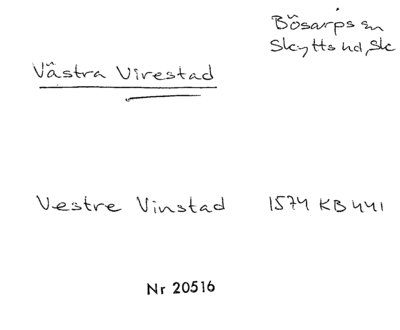 Bösarps sn
Skytts hd, Sk
Västra Virestad
Vestre Vinstad 1574 KB 441
Nr 20516